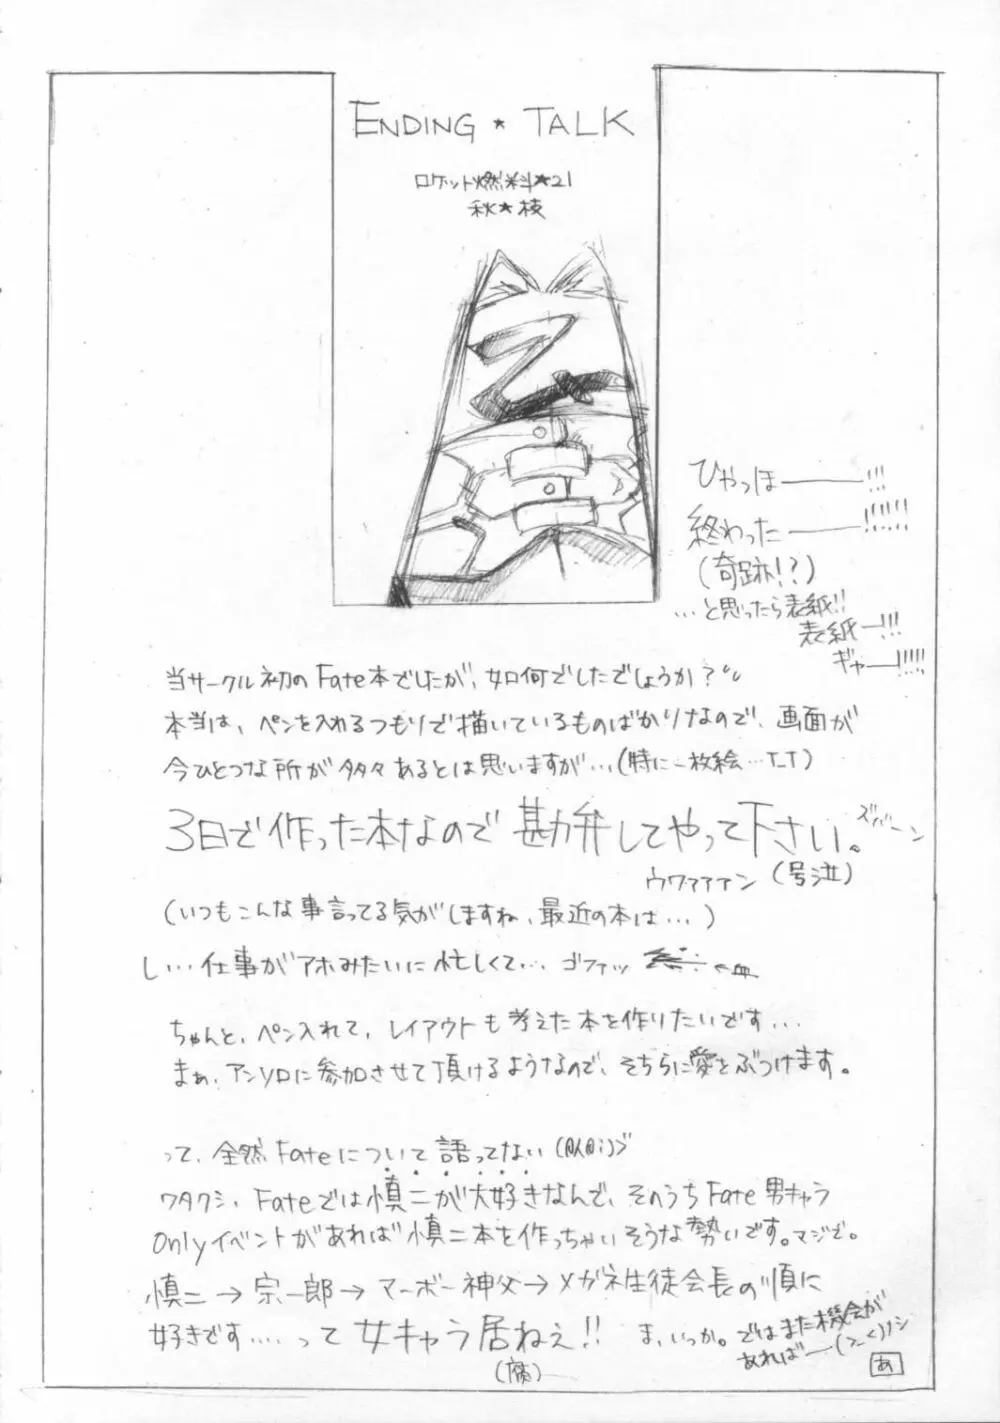 ENDING ★ TALK
ロケット燃料★21
秋★枝
乙
ひやっほ――!!!
終わった――!!!!!
(奇跡!?)
…と思ったら表紙!!
表紙ー!!!
ギャー!!!!!
当サークル初のFate本でしたが、如何でしたでしょうか?
本当は、ペンを入れるつもりで描いているものばかりなので、画面が
今ひとつな所が多々あるとは思いますが…(特に一枚絵…T_T)
3日で作った本なので勘弁してやって下さい。ズバーン
ウワァァァン(号泣)
(いつもこんな事言ってる気がしますね、最近の本は…)
し…仕事がアホみたいに忙しくて… ゴファッ ←血
ちゃんと、ペン入れて、レイアウトも考えた本を作りたいです…
まぁ、アンソロに参加させて頂けるようなので、そちらに愛をぶつけます。
って、全然Fateについて語ってない
ワタクシ、Fateでは慎二が大好きなんで、そのうちFate男キャラ
Onlyイベントがあれば慎二本を作っちゃいそうな勢いです。マジで。
慎二→宗一郎→マーボー神父→メガネ生徒会長の順に
好きです…. って女キャラ居ねぇ!! ま、いっか。ではまた機会が
あればー(>_<)ノシ
(腐)
あ